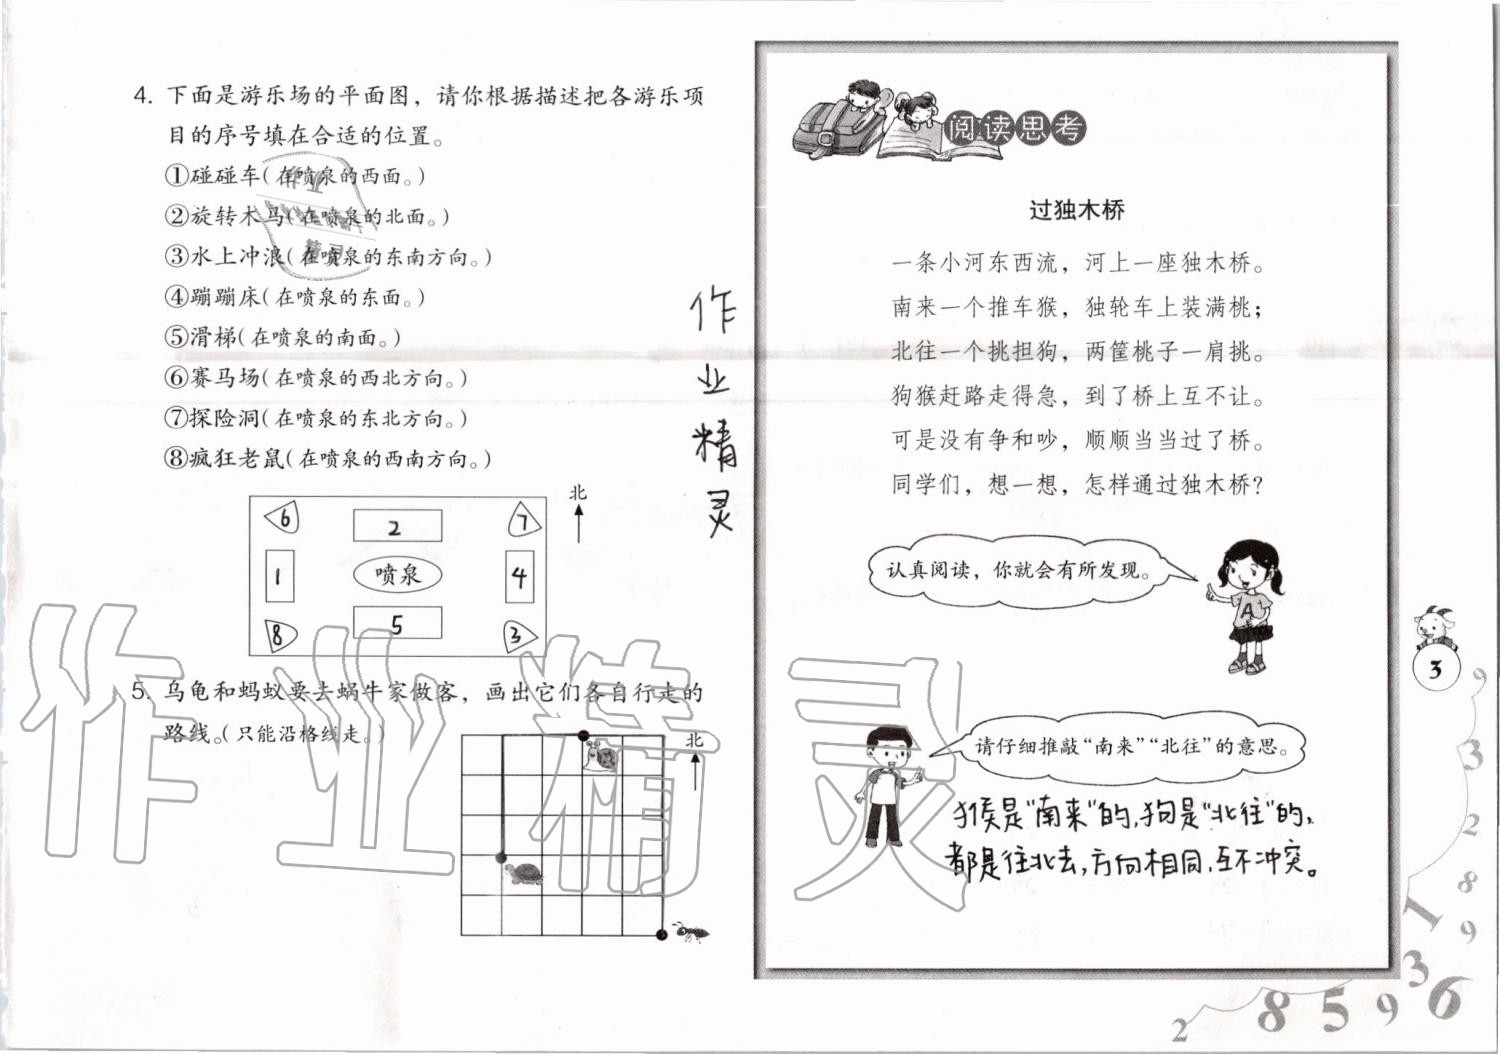 4. 下面是游乐场的平面图，请你根据描述把各游乐项
目的序号填在合适的位置。
①碰碰车(在喷泉的西面。)
②旋转木马(在喷泉的北面。)
③水上冲浪(在喷泉的东南方向。)
④蹦蹦床(在喷泉的东面。)
⑤滑梯(在喷泉的南面。)
⑥赛马场(在喷泉的西北方向。)
⑦探险洞(在喷泉的东北方向。)
⑧疯狂老鼠(在喷泉的西南方向。)
北
6 2 7
1 喷泉 4
8 5 3
5. 乌龟和蚂蚁要去蜗牛家做客，画出它们各自行走的
路线。(只能沿格线走。)
北
作
业
精
灵
作业精灵
阅读思考
过独木桥
一条小河东西流，河上一座独木桥。
南来一个推车猴，独轮车上装满桃；
北往一个挑担狗，两筐桃子一肩挑。
狗猴赶路走得急，到了桥上互不让。
可是没有争和吵，顺顺当当过了桥。
同学们，想一想，怎样通过独木桥？
认真阅读，你就会有所发现。
A
请仔细推敲“南来”“北往”的意思。
猴是“南来”的,狗是“北往”的,
都是往北去,方向相同,互不冲突。
3
9
3
2
8
9
1
3
6
2 8 5 9